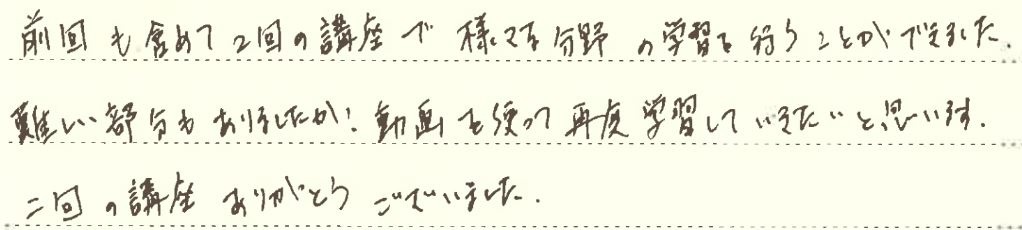 前回も含めて2回の講座で様々な分野の学習を行うことができました.
難しい部分もありましたが、動画を使って再度学習していきたいと思います.
二回の講座ありがとうございました.